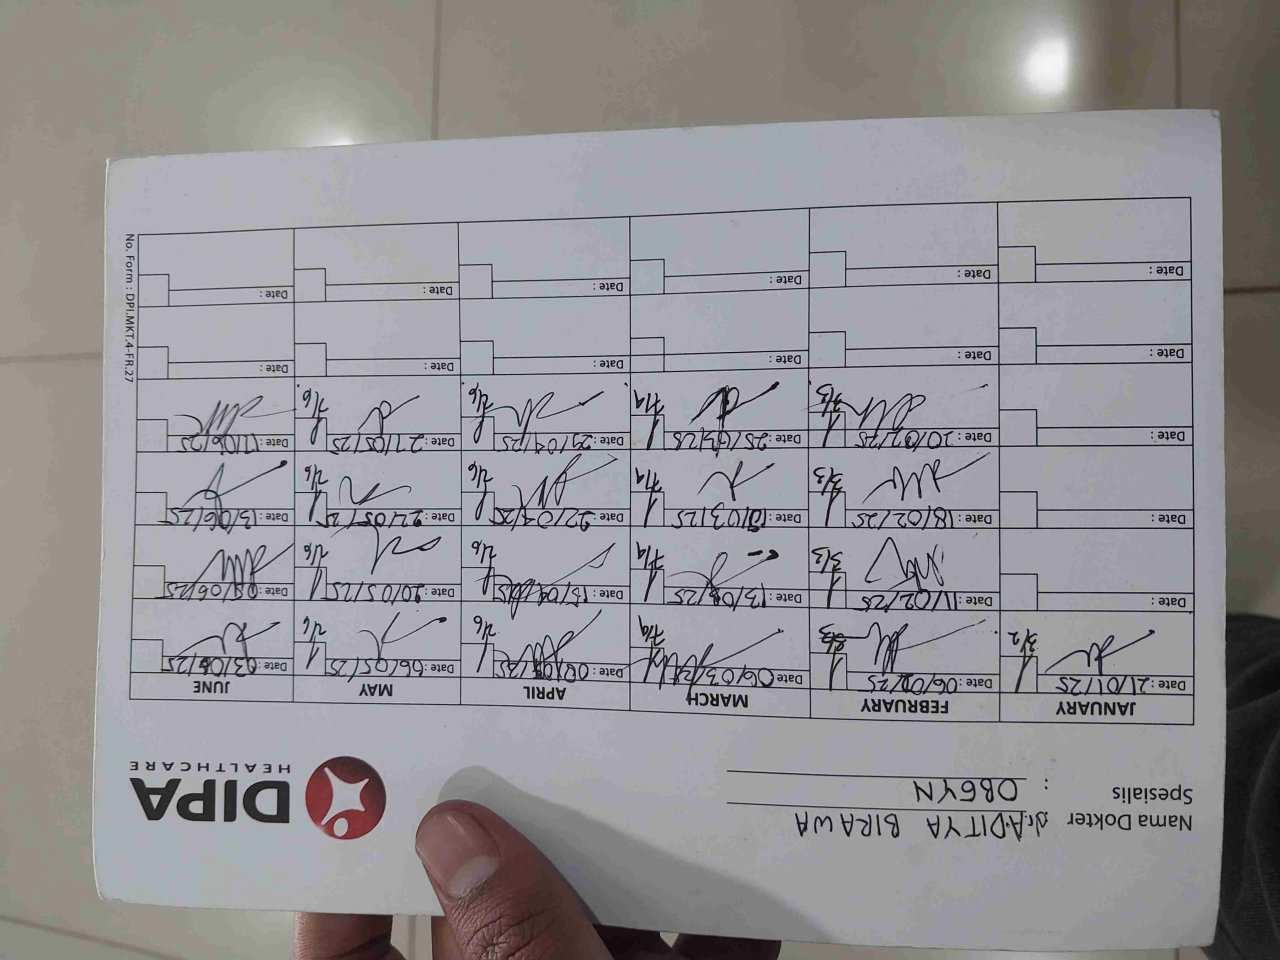 Nama Dokter dr. ADITYA BIRAWA
Spesialis : OBGYN
DIPA
HEALTHCARE
JANUARY FEBRUARY MARCH APRIL MAY JUNE
Date : 21/01/25 Date : 06/02/25 Date : 06/03/25 Date : Date : 06/05/25 Date : 03/06/25
3/2 3/3 7/4 2/6
Date : Date : 11/02/25 Date : 13/03/25 Date : 15/04/25 Date : 20/05/25 Date : 05/06/25
3/3 7/4 2/6 2/6
Date : Date : 18/02/25 Date : 18/03/25 Date : 22/04/25 Date : 22/05/25 Date : 13/06/25
3/3 7/4 2/6 2/6
Date : Date : 20/02/25 Date : 25/03/25 Date : 29/04/25 Date : 27/05/25 Date : 17/06/25
3/3 7/4 2/6
Date : Date : Date : Date : Date : Date :
Date : Date : Date : Date : Date : Date :
No. Form : DPI.MKT.4-FR.27